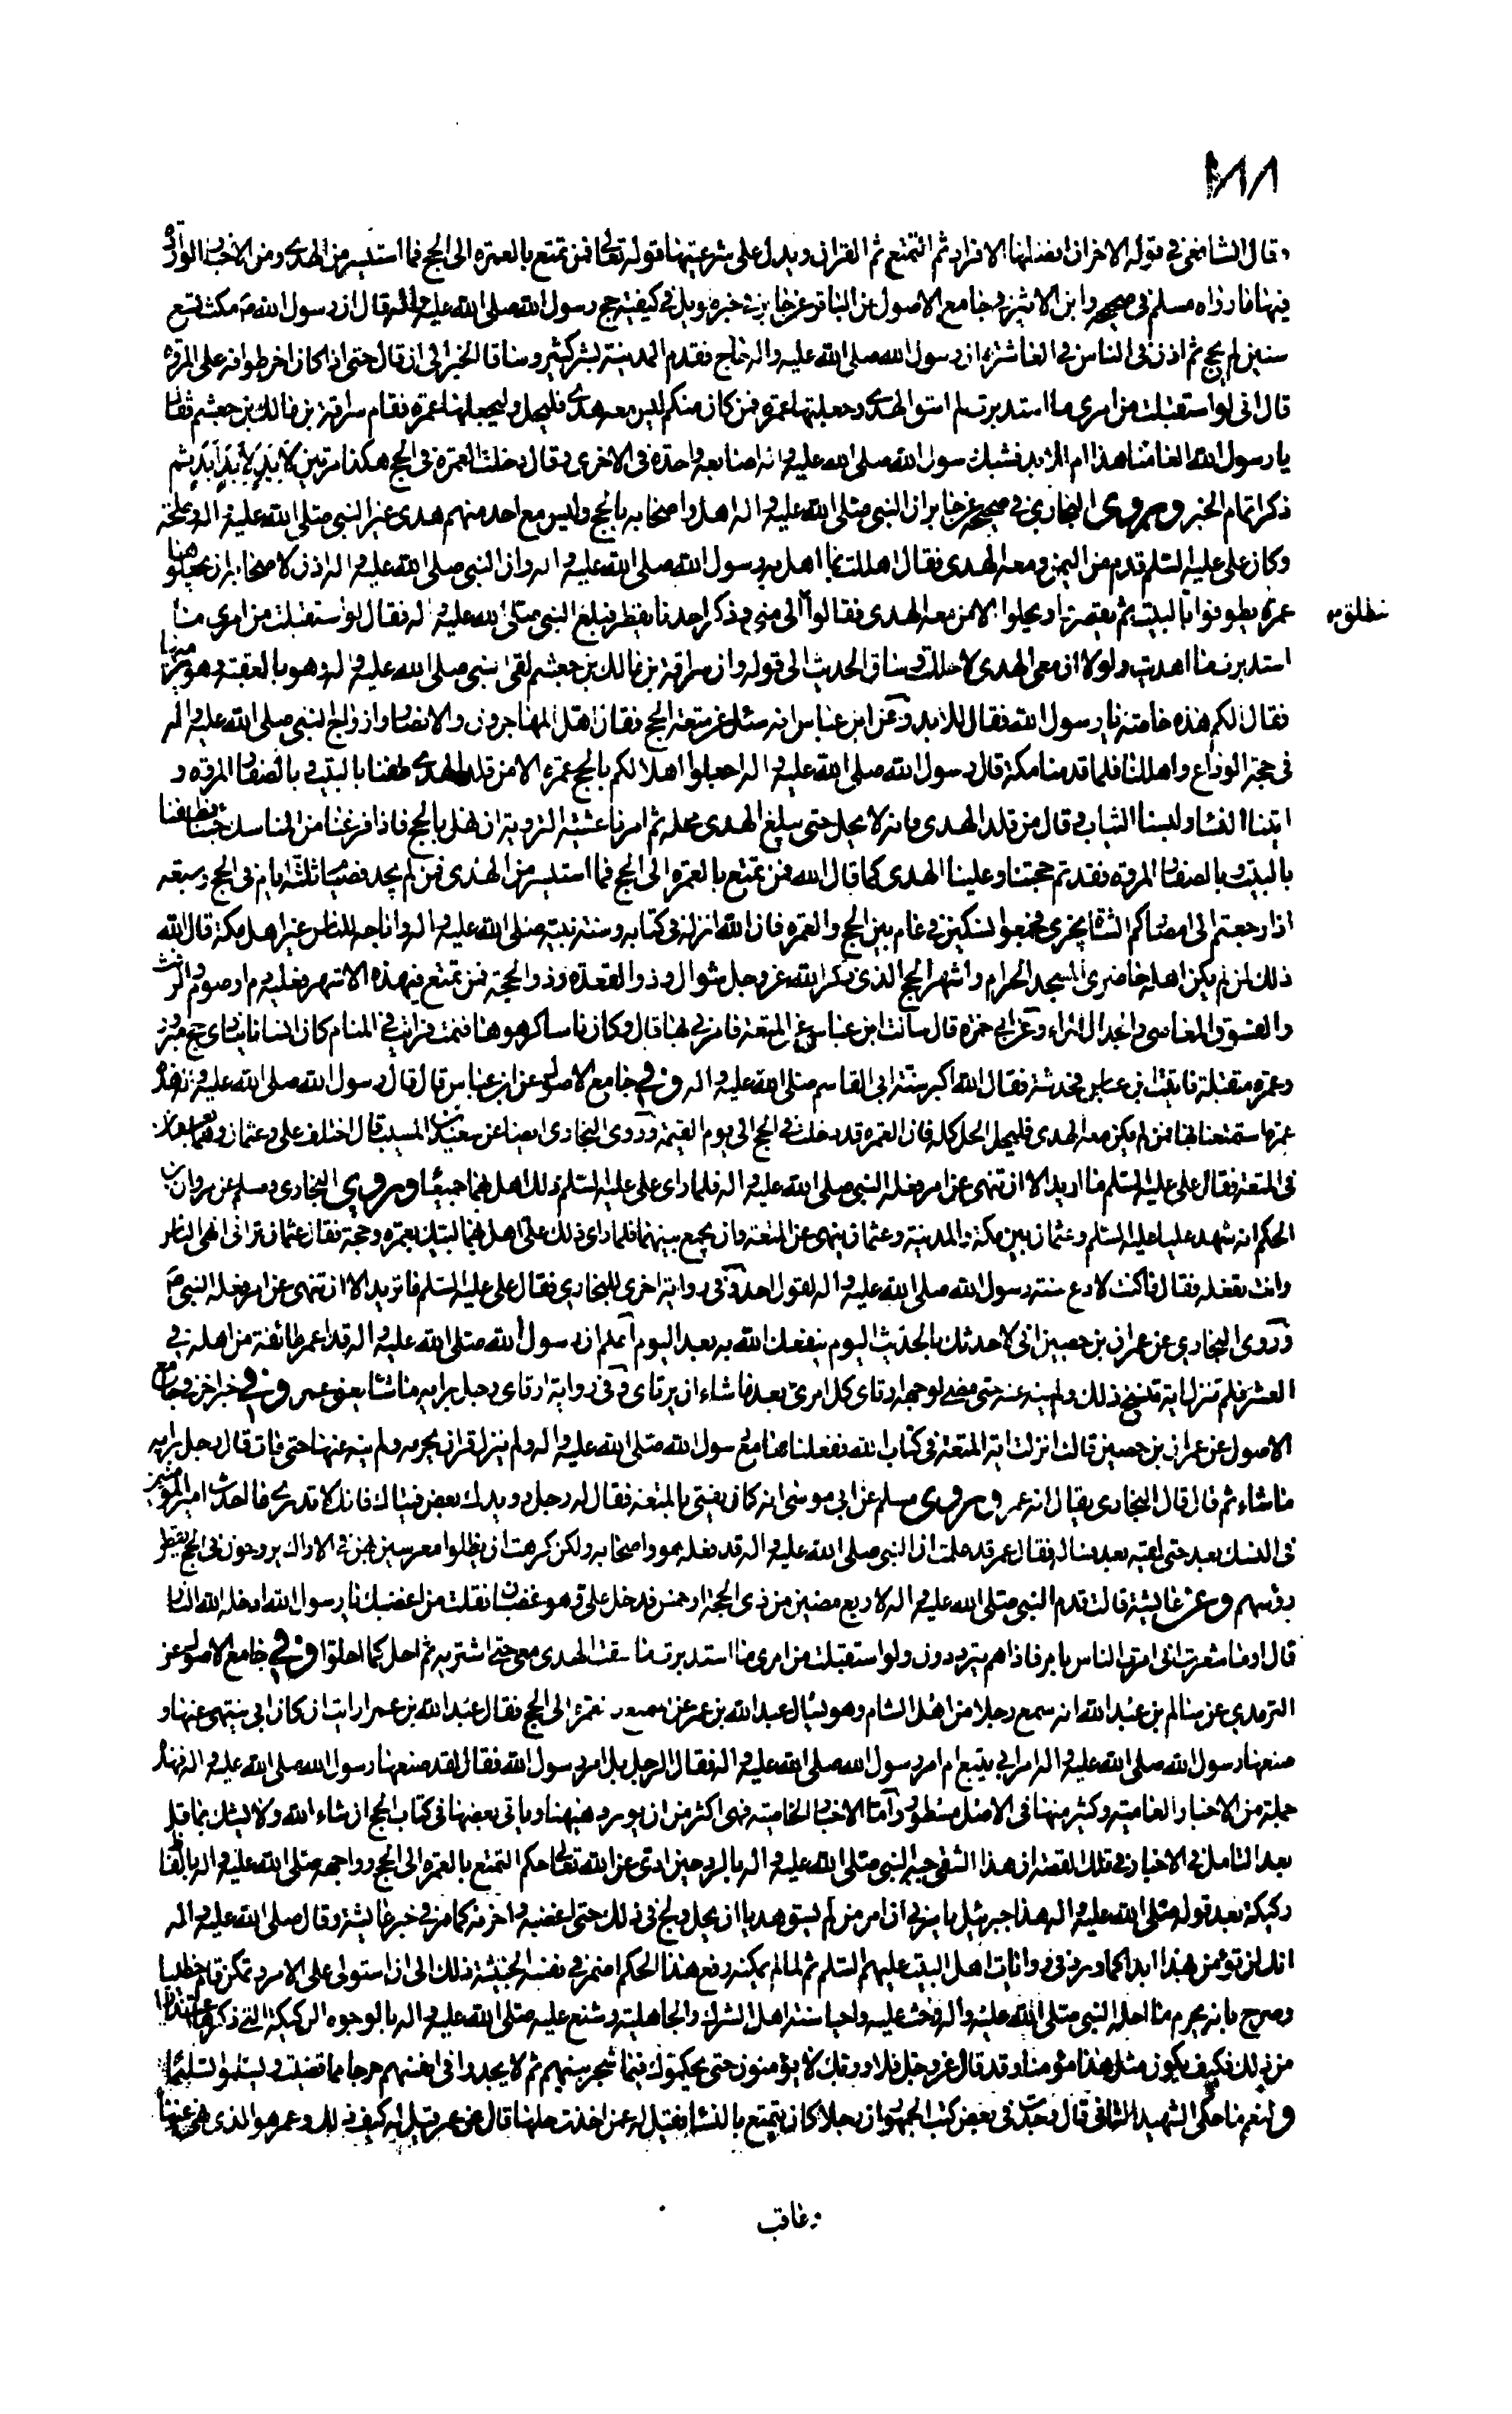 ٢٨٨
وقال الشافعي في قوله الاخران افضلها الافراد ثم التمتع ثم القران ويدل على شرعيتها قوله تعالى فمن تمتع بالعمرة الى الحج فما استيسر من الهدى ومن الاخبار الواردة
فيها ما رواه مسلم في صحيحه وابن الاثير في جامع الاصول عن الباقر عن جابر في خبر طويل في كيفية حج رسول الله صلى الله عليه واله قال ان رسول الله ص مكث تسع
سنين لم يحج ثم اذن في الناس في العاشرة ان رسول الله صلى الله عليه واله حاج فقدم المدينة بشر كثير وساقا الخبر الى ان قال حتى اذا كان اخر طوافه على المروة
قال اني لو استقبلت من امري ما استدبرت لم اسق الهدى وجعلتها عمرة فمن كان منكم ليس معه هدى فليحل وليجعلها عمرة فقام سراقة بن مالك بن جعشم فقال
يا رسول الله العامنا هذا ام للابد فشبك رسول الله صلى الله عليه واله اصابعه واحدة في الاخرى وقال دخلت العمرة في الحج هكذا مرتين لا بل لابد ابد ثم
ذكرا تمام الخبر وروى البخاري في صحيحه عن جابر ان النبي صلى الله عليه واله اهل واصحابه بالحج وليس مع احد منهم هدى غير النبي صلى الله عليه واله وطلحة
وكان على عليه السلم قدم من اليمن ومعه الهدى فقال اهللت بما اهل به رسول الله صلى الله عليه واله وان النبي صلى الله عليه واله اذن لاصحابه ان يجعلوها
عمرة يطوفوا بالبيت ثم يقصروا ويحلوا الا من معه الهدى فقالوا الى منى وذكر احدنا يقطر فبلغ النبي صلى الله عليه واله فقال لو استقبلت من امري ما
ننطلق
استدبرت ما اهديت ولولا ان معي الهدى لاحللت وساق الحديث الى قوله وان سراقة بن مالك بن جعشم لقى النبي صلى الله عليه واله وهو بالعقبة وهو يرميها
فقال الكم هذه خاصة يا رسول الله فقال للابد وعن ابن عباس انه سئل عن متعة الحج فقال اهل المهاجرون والانصار وازواج النبي صلى الله عليه واله
في حجة الوداع واهللنا فلما قدمنا مكة قال رسول الله صلى الله عليه واله اجعلوا اهلالكم بالحج عمرة الا من قلد الهدى طفنا بالبيت وبالصفا والمروة و
اتينا النساء ولبسنا الثياب وقال من قلد الهدى فانه لا يحل حتى يبلغ الهدى محله ثم امرنا عشية التروية ان نهل بالحج فاذا فرغنا من المناسك جئنا فطفنا
بالبيت وبالصفا والمروة فقد تم حجتنا وعلينا الهدى كما قال الله فمن تمتع بالعمرة الى الحج فما استيسر من الهدى فمن لم يجد فصيام ثلثة ايام في الحج وسبعة
اذا رجعتم الى امصاركم الشاة تجزي فجمعوا نسكين في عام بين الحج والعمرة فان الله انزله في كتابه وسنة نبيه صلى الله عليه واله واباحه للناس غير اهل مكة قال الله
ذلك لمن لم يكن اهله حاضري المسجد الحرام واشهر الحج الذي ذكر الله عز وجل شوال وذو القعدة وذو الحجة فمن تمتع في هذه الاشهر فعليه دم او صوم والرفث
والفسوق المعاصي والجدال المراء وعن ابي حمزة قال سألت ابن عباس عن المتعة فامرني بها قال وكان ناسا كرهوها فنمت فرايت في المنام كان انسانا ينادي حج مبرور
وعمرة متقبلة فاتيت ابن عباس فحدثته فقال الله اكبر سنة ابي القاسم صلى الله عليه واله وفي جامع الاصول عن ابن عباس قال قال رسول الله صلى الله عليه واله هذه
عمرة استمتعنا بها فمن لم يكن معه الهدى فليحل الحل كله فان العمرة قد دخلت في الحج الى يوم القيمة وروى البخاري ايضا عن سعيد بن المسيب قال اختلف علي وعثمان وهما بعسفان
في المتعة فقال علي عليه السلم ما تريد الا ان تنهى عن امر فعله النبي صلى الله عليه واله فلما راى علي عليه السلم ذلك اهل بهما جميعا وروى البخاري ومسلم عن مروان بن
الحكم انه شهد عليا عليه السلم وعثمان بين مكة والمدينة وعثمان ينهى عن المتعة وان يجمع بينهما فلما راى ذلك علي اهل بهما لبيك بعمرة وحجة فقال عثمان تراني انهى الناس
وانت تفعله فقال ما كنت لادع سنة رسول الله صلى الله عليه واله لقول احد وفي رواية اخرى للبخاري فقال علي عليه السلم ما تريد الا ان تنهى عن امر فعله النبي ص
وروى البخاري عن عمران بن حصين اني لاحدثك بالحديث اليوم ينفعك الله به بعد اليوم اعلم ان رسول الله صلى الله عليه واله قد اعمر طائفة من اهله في
العشر فلم تنزل اية تنسخ ذلك ولم ينه عنه حتى مضى لوجهه ارتاى كل امرئ بعد ما شاء ان يرتاى وفي رواية ارتاى رجل برايه ما شاء يعني عمر وفي خبر اخر في جامع
الاصول عن عمران بن حصين قال انزلت اية المتعة في كتاب الله ففعلناها مع رسول الله صلى الله عليه واله ولم ينزل قران يحرمه ولم ينه عنها حتى مات قال رجل برايه
ما شاء ثم قال قال البخاري يقال انه عمر وروى مسلم عن ابي موسى انه كان يفتي بالمتعة فقال له رجل رويدك بعض فتياك فانك لا تدري ما احدث امير المؤمنين
في النسك بعد حتى لقيه بعد فساله فقال عمر قد علمت ان النبي صلى الله عليه واله قد فعله هو واصحابه ولكن كرهت ان يظلوا معرسين بهن في الاراك يروحون في الحج تقطر
رؤسهم وعن عايشة قالت قدم النبي صلى الله عليه واله لاربع مضين من ذي الحجة او خمس فدخل علي وهو غضبان فقلت من اغضبك يا رسول الله ادخله الله النار
قال اوما شعرت اني امرت الناس بامر فاذا هم يترددون ولو استقبلت من امري ما استدبرت ما سقت الهدى معي حتى اشتريه ثم احل كما احلوا وفي جامع الاصول عن
الترمذي عن سالم بن عبد الله انه سمع رجلا من اهل الشام وهو يسأل عبد الله بن عمر عن التمتع بالعمرة الى الحج فقال عبد الله بن عمر ارايت ان كان ابي ينهى عنها و
صنعها رسول الله صلى الله عليه واله امر ابي يتبع ام امر رسول الله صلى الله عليه واله فقال الرجل بل امر رسول الله فقال لقد صنعها رسول الله صلى الله عليه واله فهذه
جملة من الاخبار العامية وكثير منها في الاصل مسطور واما الاخبار الخاصية فهي اكثر من ان يورد هيهنا وياتي بعضها في كتاب الحج ان شاء الله ولا يشك عاقل
بعد التامل في الاخبار في تلك القصة ان هذا الشقي جبه النبي صلى الله عليه واله بالرد حين ادى عن الله تعالى حكم التمتع بالعمرة الى الحج وواجهه صلى الله عليه واله بالفاظ
ركيكة بعد قوله صلى الله عليه واله هذا جبرئيل يامرني ان امر من لم يسق هديا ان يحل ولج في ذلك حتى اغضبه واحزنه كما مر في خبر عايشة وقال صلى الله عليه واله
انك لن تؤمن بهذا ابدا كما ورد في روايات اهل البيت عليهم السلم ثم لما لم يمكنه رفع هذا الحكم اضمر في نفسه الخبيثة ذلك الى ان استولى على الامر وتمكن قام خطيبا
وصرح بانه يحرم ما احله النبي صلى الله عليه واله وحث عليه واحيا سنة اهل الشرك والجاهلية وشنع عليه صلى الله عليه واله بالوجوه الركيكة التي ذكرها
من ذلك فكيف يكون مثل هذا مؤمنا وقد قال عز وجل فلا وربك لا يؤمنون حتى يحكموك فيما شجر بينهم ثم لا يجدوا في انفسهم حرجا مما قضيت ويسلموا تسليما
ولنعم ما حكى الشهيد الثاني قال وجدت في بعض كتب الجمهور ان رجلا كان يتمتع بالنساء فقيل له عمن اخذت حلها قال عن عمر قيل له كيف ذلك وعمر هو الذي نهى عنها
وعاقب